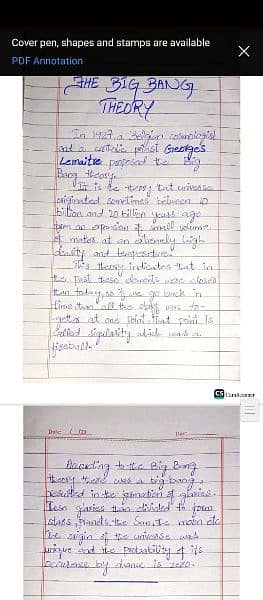 Cover pen, shapes and stamps are available
PDF Annotation
THE BIG BANG
THEORY
In 1927, a Belgian cosmologist
and a catholic priest Georges
Lemaitre proposed the Big
Bang theory.
It is the theory that universe
originated sometimes between 10
billion and 20 billion years ago
from an expansion of small volume
of matter at an extremely high
density and temperature.
This theory indicates that in
the past these elements were closer
than today, so if we go back in
time, than all the stuff was to-
gether at one point. That point is
called singularity which was a
fireball.
CS CamScanner
Date
According to the Big Bang
theory there was a big bang,
resulted in the formation of glaxies.
Then glaxies than divided to form
stars, planets, the Sun, the moon etc
The origin of the universe was
unique and the probability of its
occurence by chance is zero.